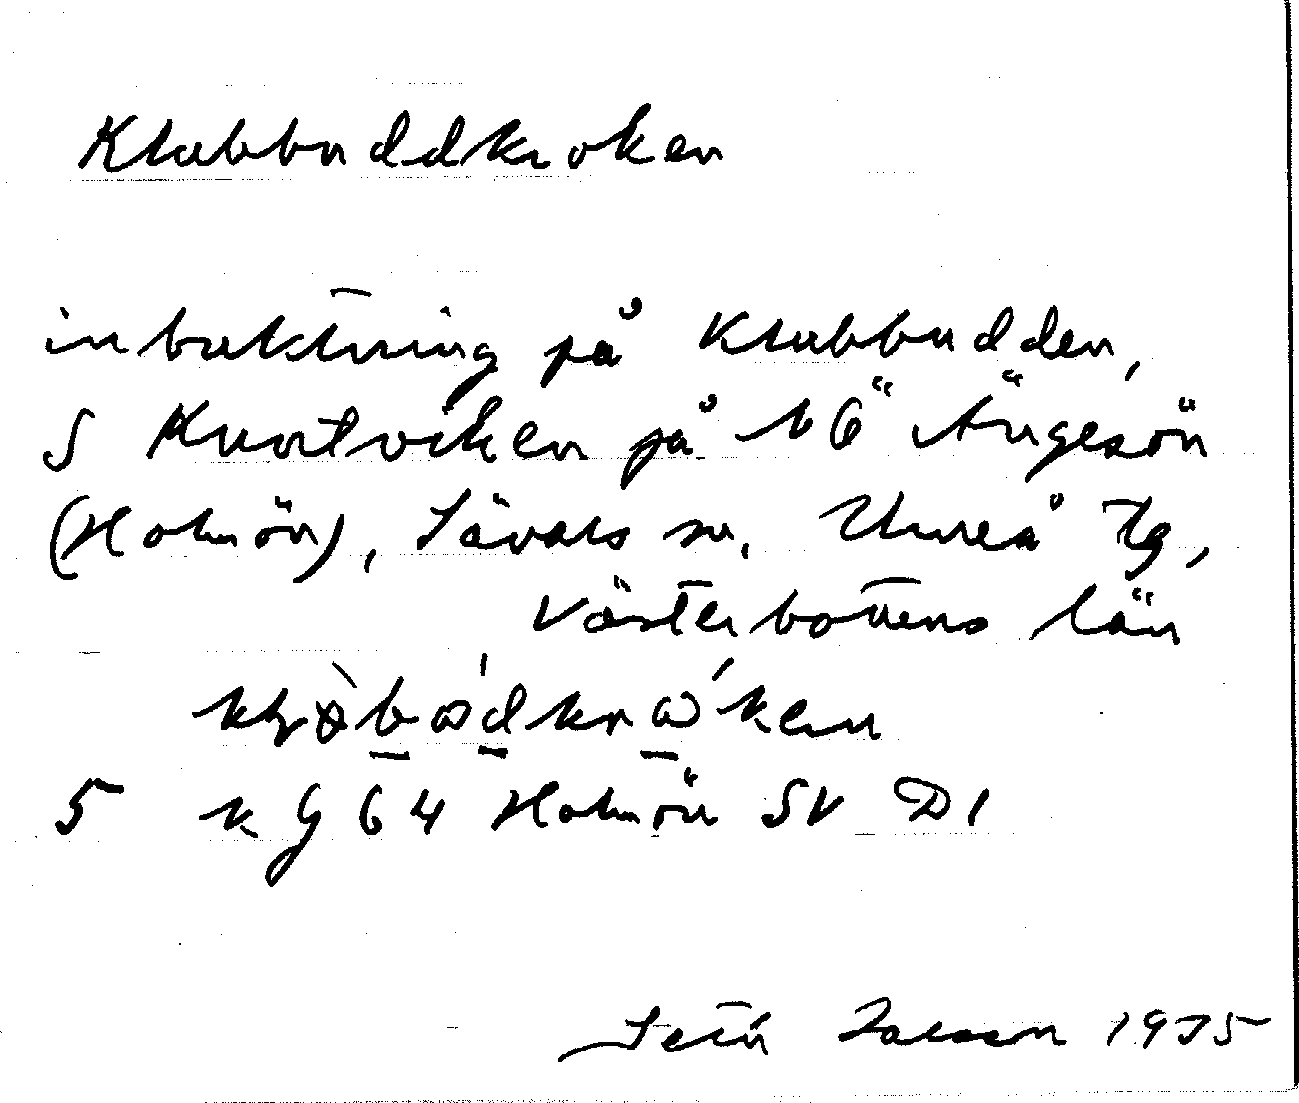 Klubbuddkroken
inbuktning på Klubbudden,
S Kvartviken på NÖ Ängesön
(Holmön), Sävars sn, Umeå tg,
Västerbottens län
5 kg 64 Holmön SV D1
Setu Jansson 1975